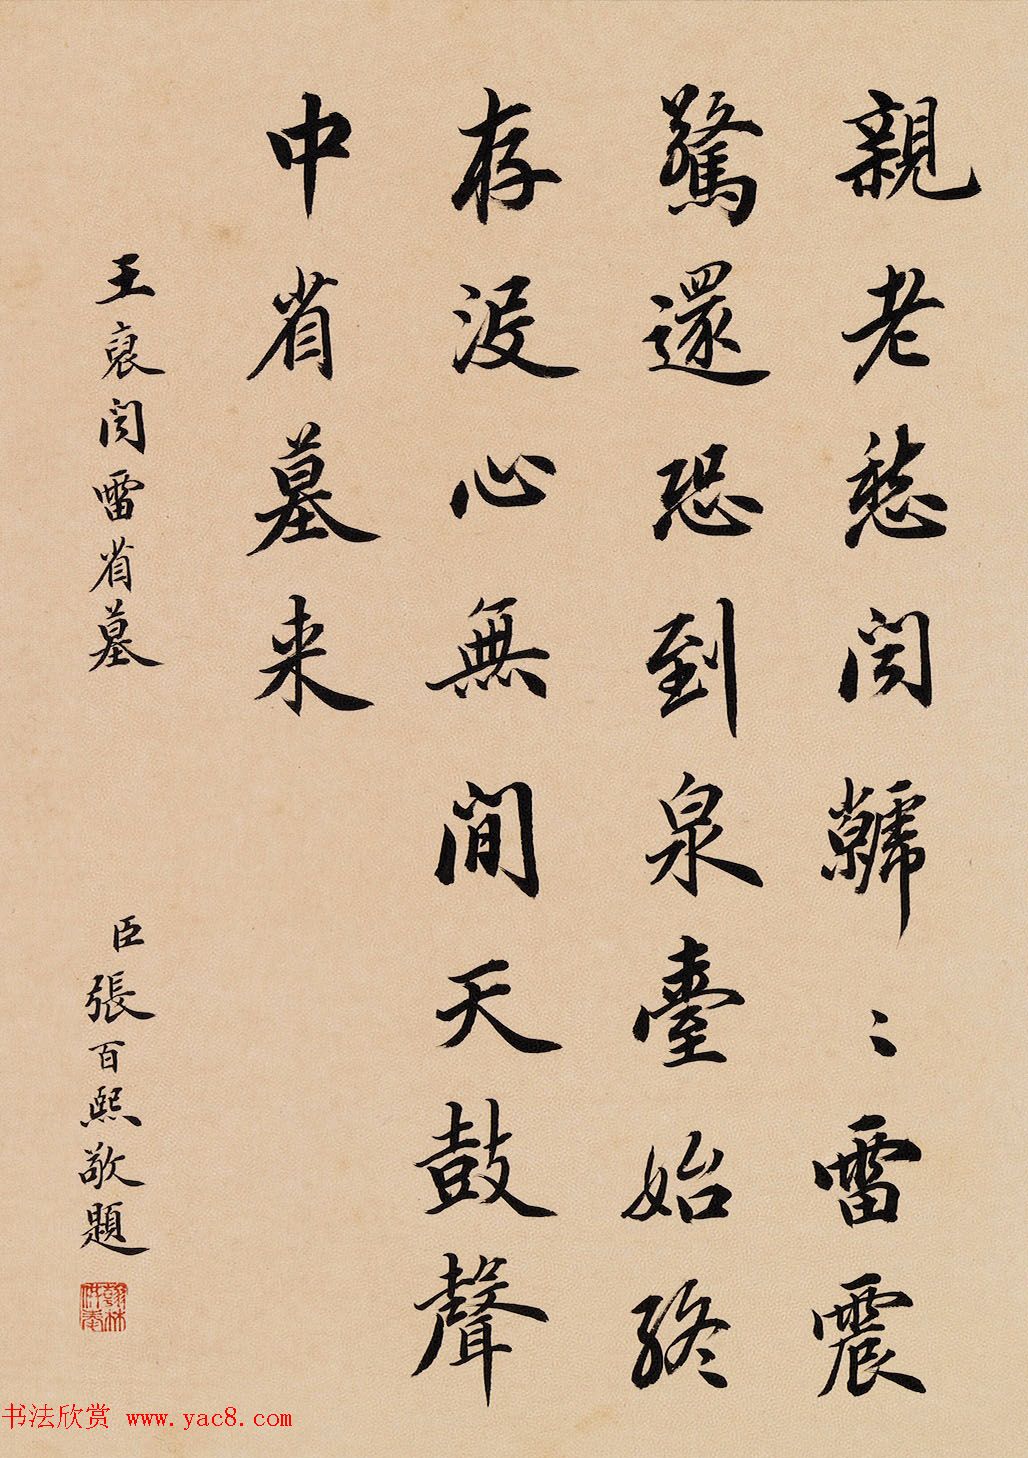 親老愁聞虩〻雷震
驚還恐到泉臺始終
存没心無間天鼓聲
中省墓来
王裒聞雷省墓
臣張百熙敬題
翰林供奉
书法欣赏 www.yac8.com